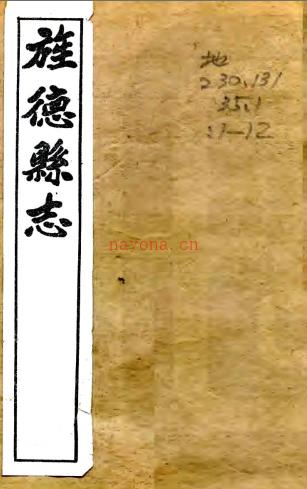 旌德縣志
地
230.131
35.1
:1-12
nayona.cn